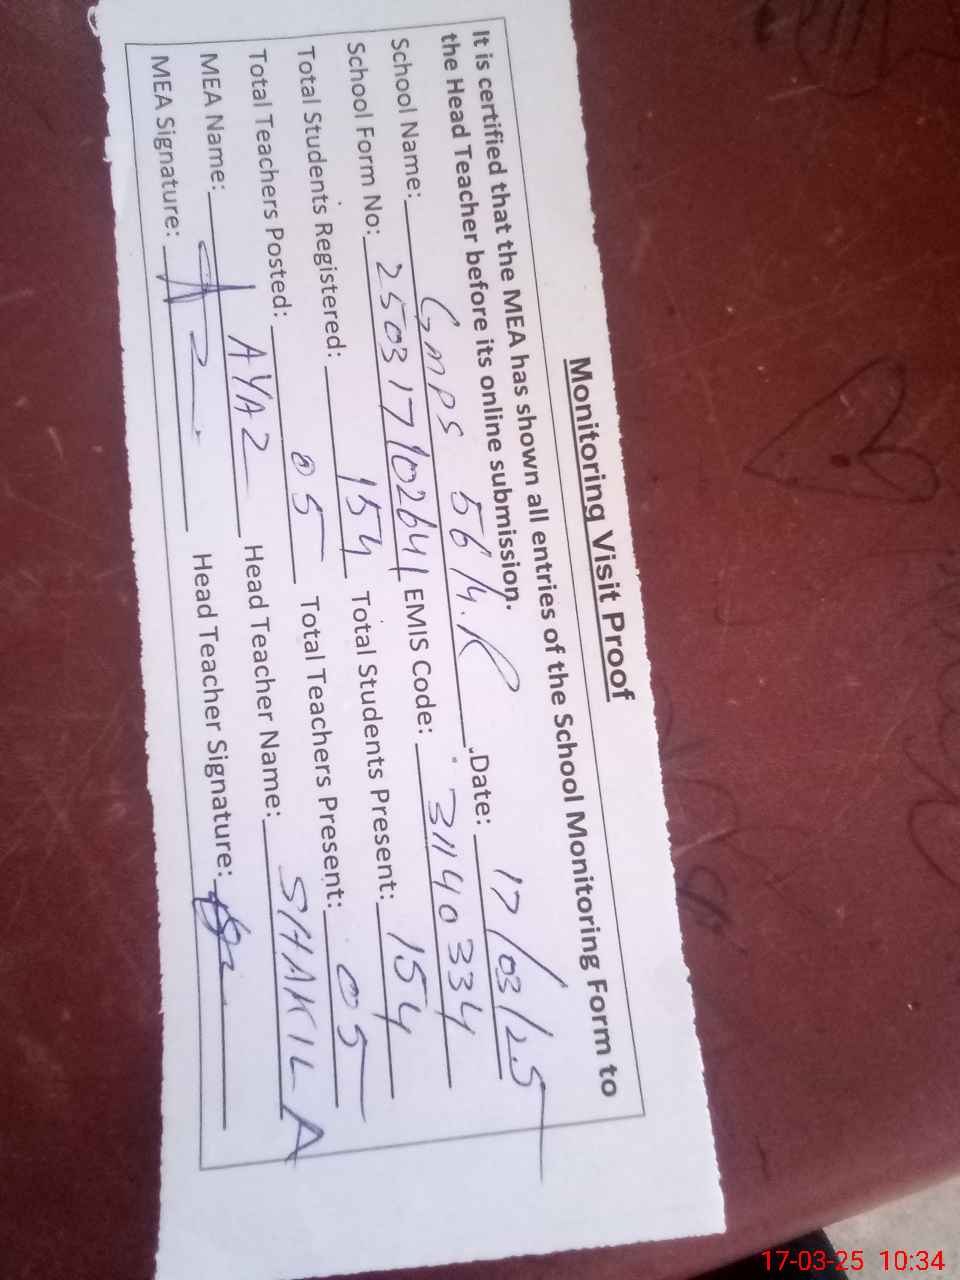 Monitoring Visit Proof
It is certified that the MEA has shown all entries of the School Monitoring Form to
the Head Teacher before its online submission.
School Name: GMPS 56/4.R Date: 17/03/25
School Form No: 2503171102641 EMIS Code: 31140334
Total Students Registered: 154 Total Students Present: 154
Total Teachers Posted: 05 Total Teachers Present: 05
MEA Name: AYAZ Head Teacher Name: SHAKILA
MEA Signature: Head Teacher Signature:
17-03-25 10:34